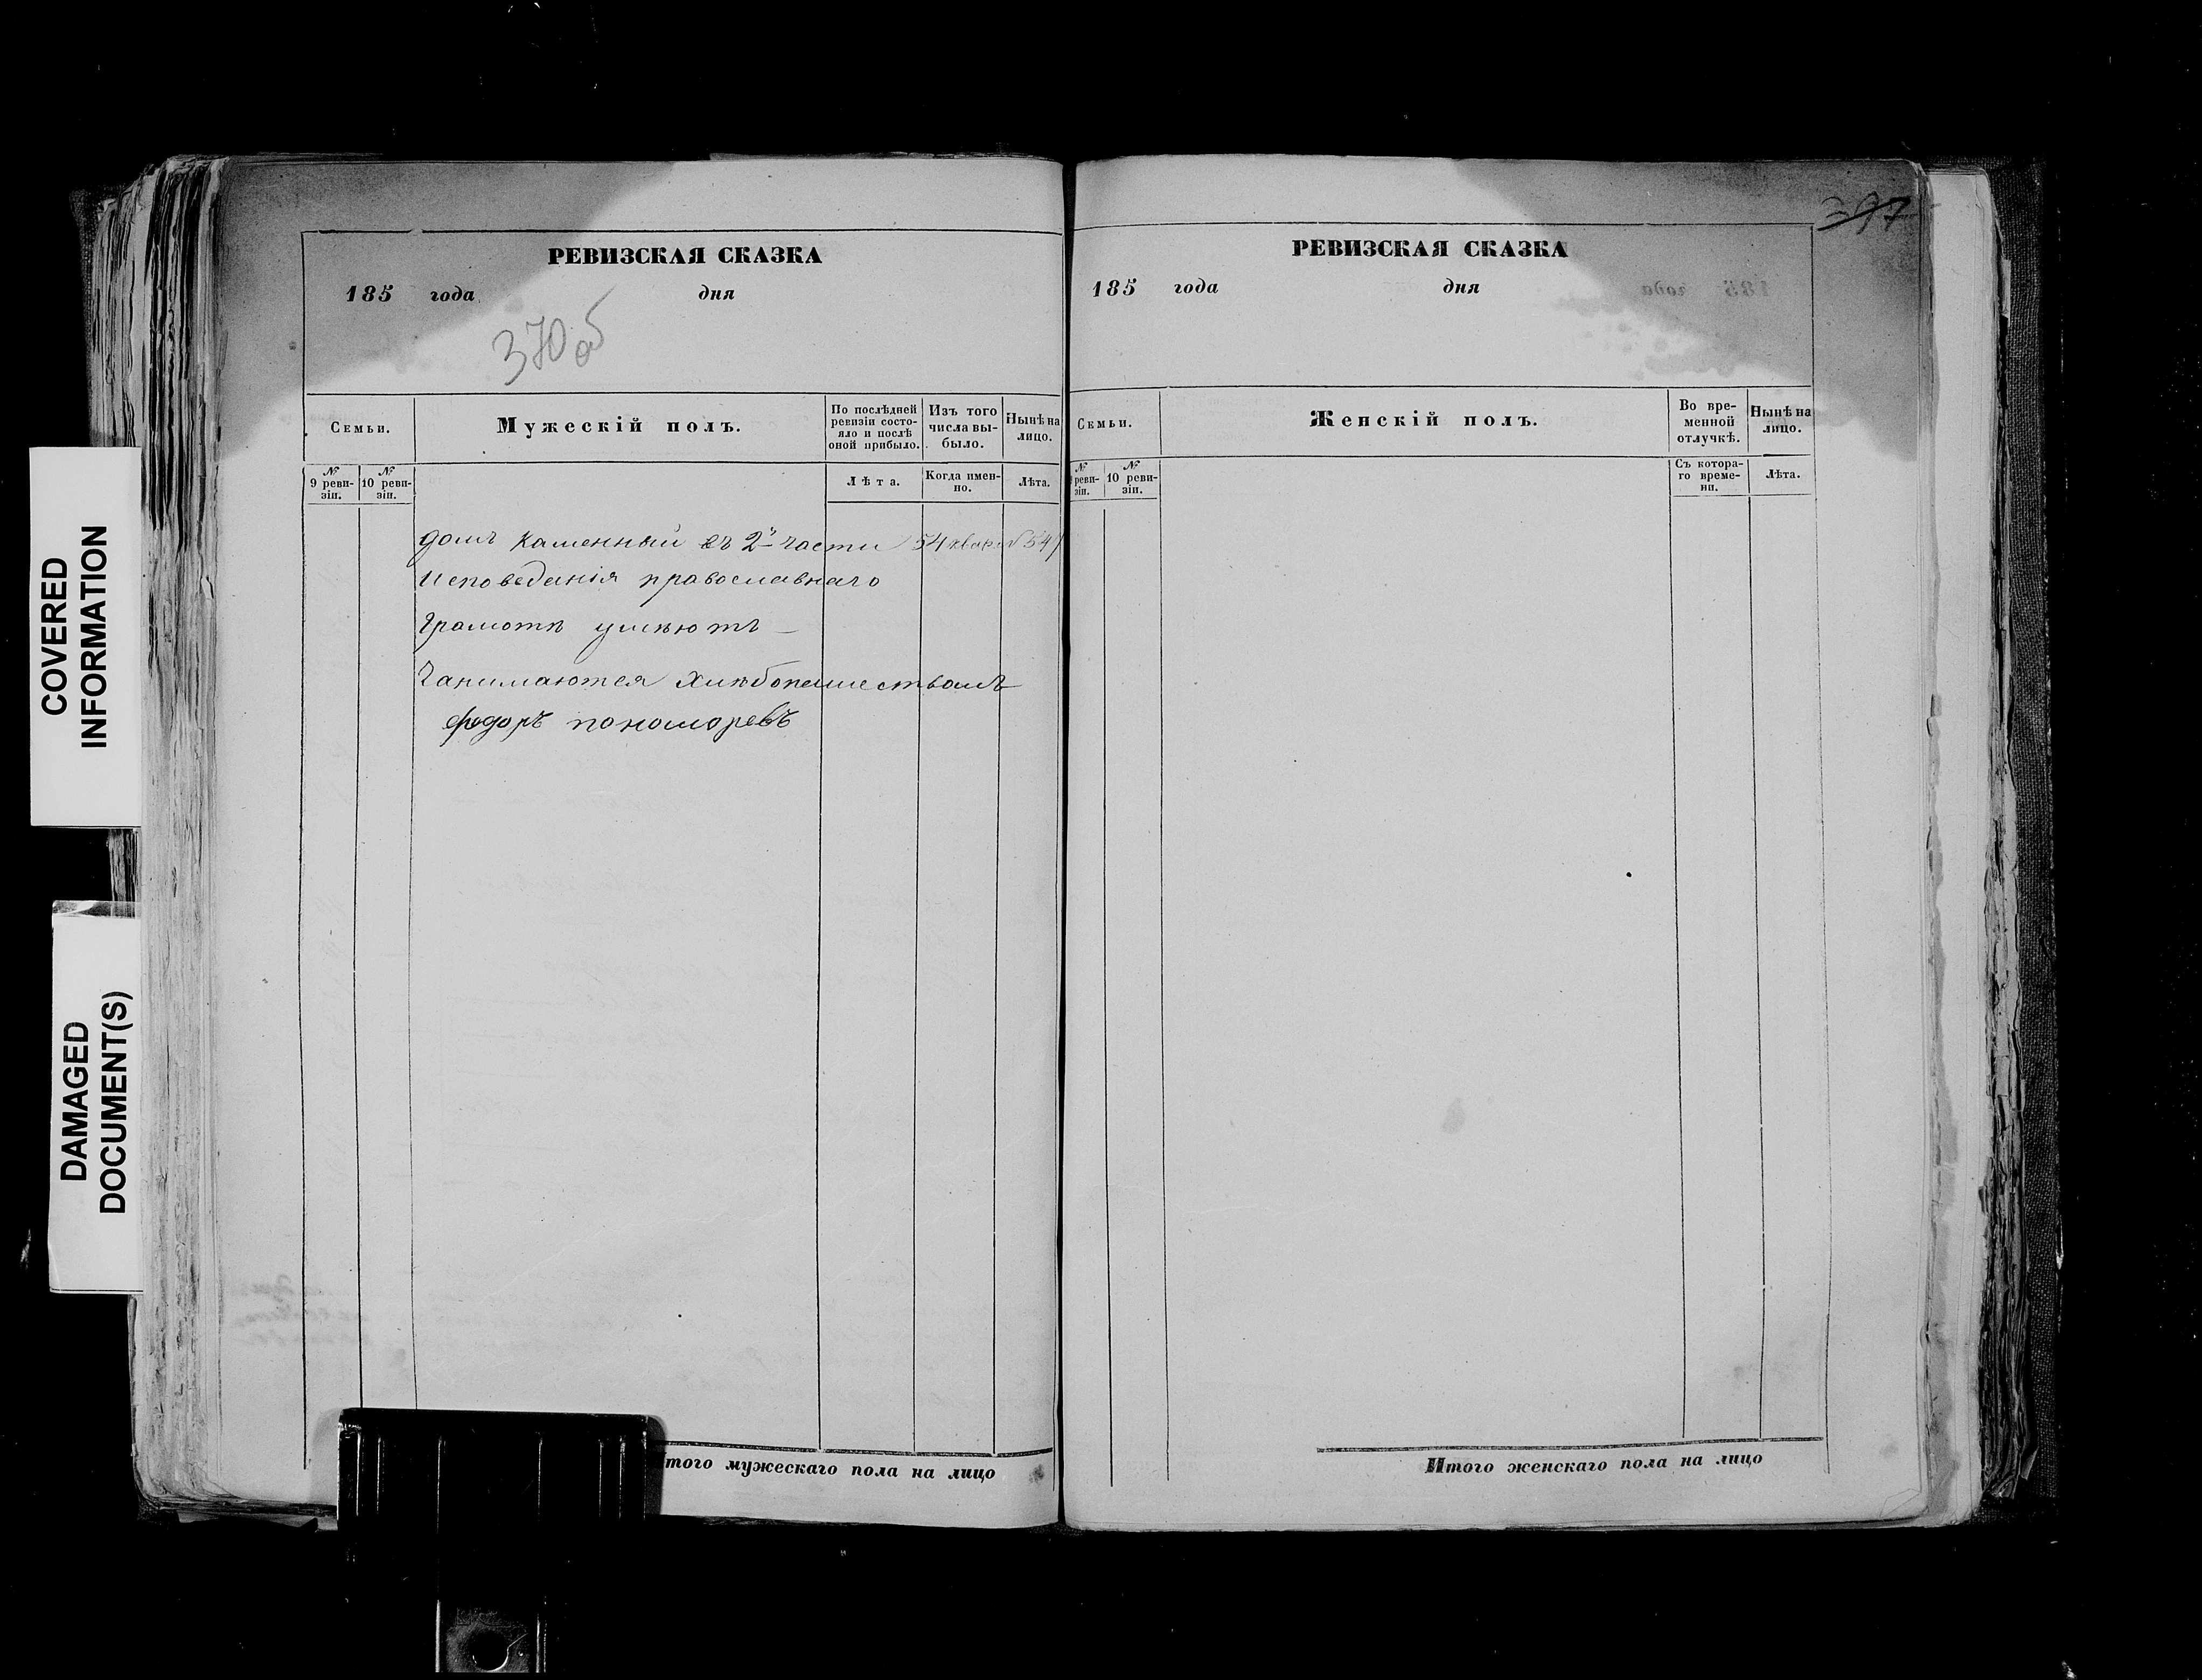 COVERED
INFORMATION
DAMAGED
DOCUMENT(S)
РЕВИЗСКАЯ СКАЗКА
185 года дня
370 об
Семьи.
Мужескій полъ.
По послѣдней ревизіи состояло и послѣ оной прибыло.
Изъ того числа выбыло.
Нынѣ на лицо.
№ 9 ревизіи.
№ 10 ревизіи.
Лѣта.
Когда именно.
Лѣта.
домъ каменный въ 2й части 54 квар. №54
Исповеданія православнаго
Грамотѣ умѣютъ —
Занимаются хлѣбопашествомъ
Федоръ пономоревъ
того мужескаго пола на лицо
РЕВИЗСКАЯ СКАЗКА
185 года дня
Семьи.
Женскій полъ.
Во временной отлучкѣ.
Нынѣ на лицо.
№ реви-зіи.
№ 10 ревизіи.
Съ котораго времени.
Лѣта.
Итого женскаго пола на лицо